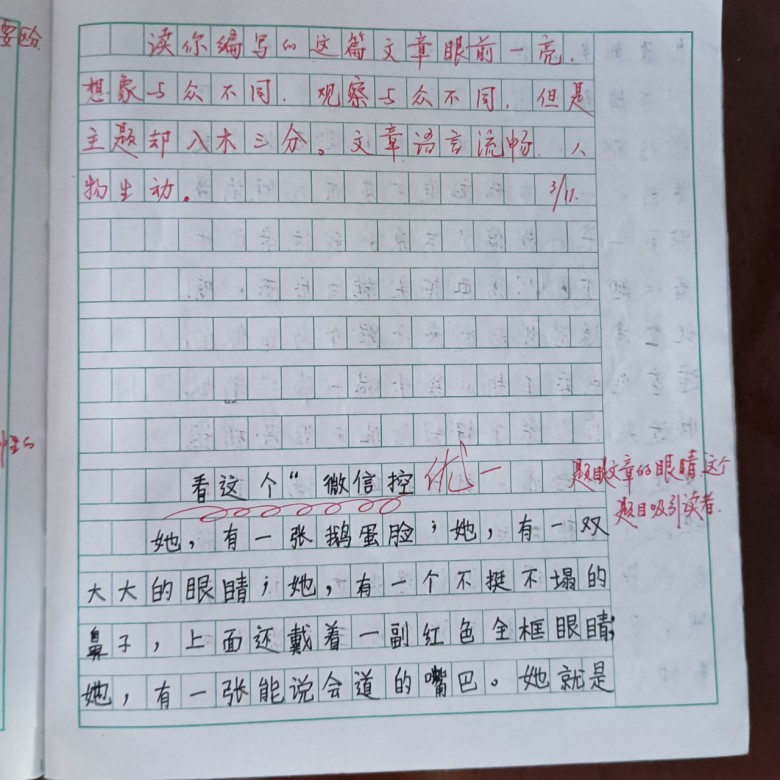 读你编写的这篇文章眼前一亮.
想象与众不同.观察与众不同,但是
主题却入木三分。文章语言流畅.人
物生动。 3/11.
看这个“微信控 优-
题目文章的眼睛,这个
题目吸引读者.
她,有一张鹅蛋脸;她,有一双
大大的眼睛;她,有一个不挺不塌的
鼻子,上面还戴着一副红色全框眼睛;
她,有一张能说会道的嘴巴。她就是